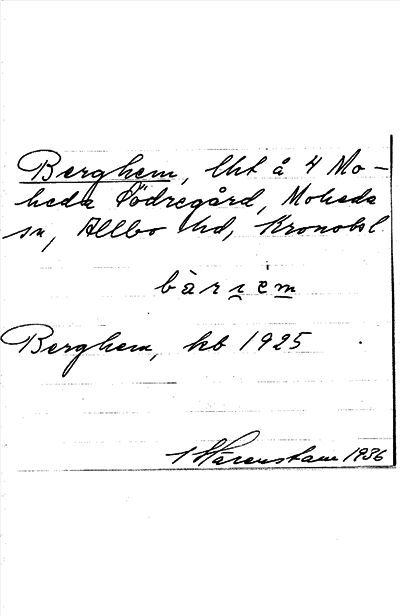 Berghem, lht å 4 Mo-
heda Södregård, Moheda
sn, Allbo hd, Kronobl.
bàri̯èm
Berghem, kb 1925
Härenstam 1936